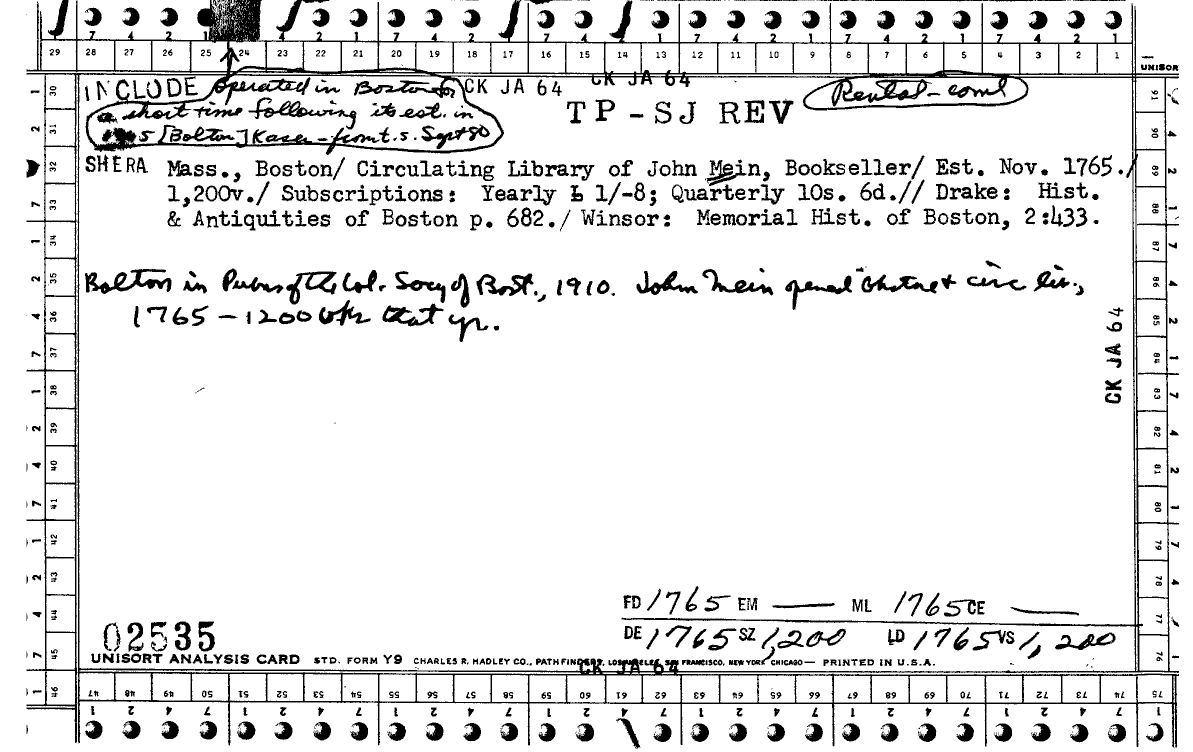 7 4 2 1 7 4 2 1 7 4 2 1 7 4 2 1 7 4 2 1 7 4 2 1 7 4 2 1
29 28 27 26 25 24 23 22 21 20 19 18 17 16 15 14 13 12 11 10 9 8 7 6 5 4 3 2 1
UNISOR
INCLUDE operated in Boston for CK JA 64 CK JA 64 Rental-coml
a short time following its est. in TP-SJ REV
5 [Bolton] Kaser - from t.s. Sept 80
SHERA Mass., Boston/ Circulating Library of John Mein, Bookseller/ Est. Nov. 1765./
1,200v./ Subscriptions: Yearly Ł 1/-8; Quarterly 10s. 6d.// Drake: Hist.
& Antiquities of Boston p. 682./ Winsor: Memorial Hist. of Boston, 2:433.
Bolton in Pubns of the Col. Socy of Bost., 1910. John Mein opened circ lib.,
1765 - 1200 bks that yr.
CK JA 64
FD 1765 EM — ML 1765 CE —
DE 1765 SZ 1,200 LD 1765 VS 1,200
02535
UNISORT ANALYSIS CARD STD. FORM Y9 CHARLES R. HADLEY CO., PATHFINDERS, LOS ANGELES, SAN FRANCISCO, NEW YORK, CHICAGO — PRINTED IN U.S.A.
CK JA 64
46 47 48 49 50 51 52 53 54 55 56 57 58 59 60 61 62 63 64 65 66 67 68 69 70 71 72 73 74 75